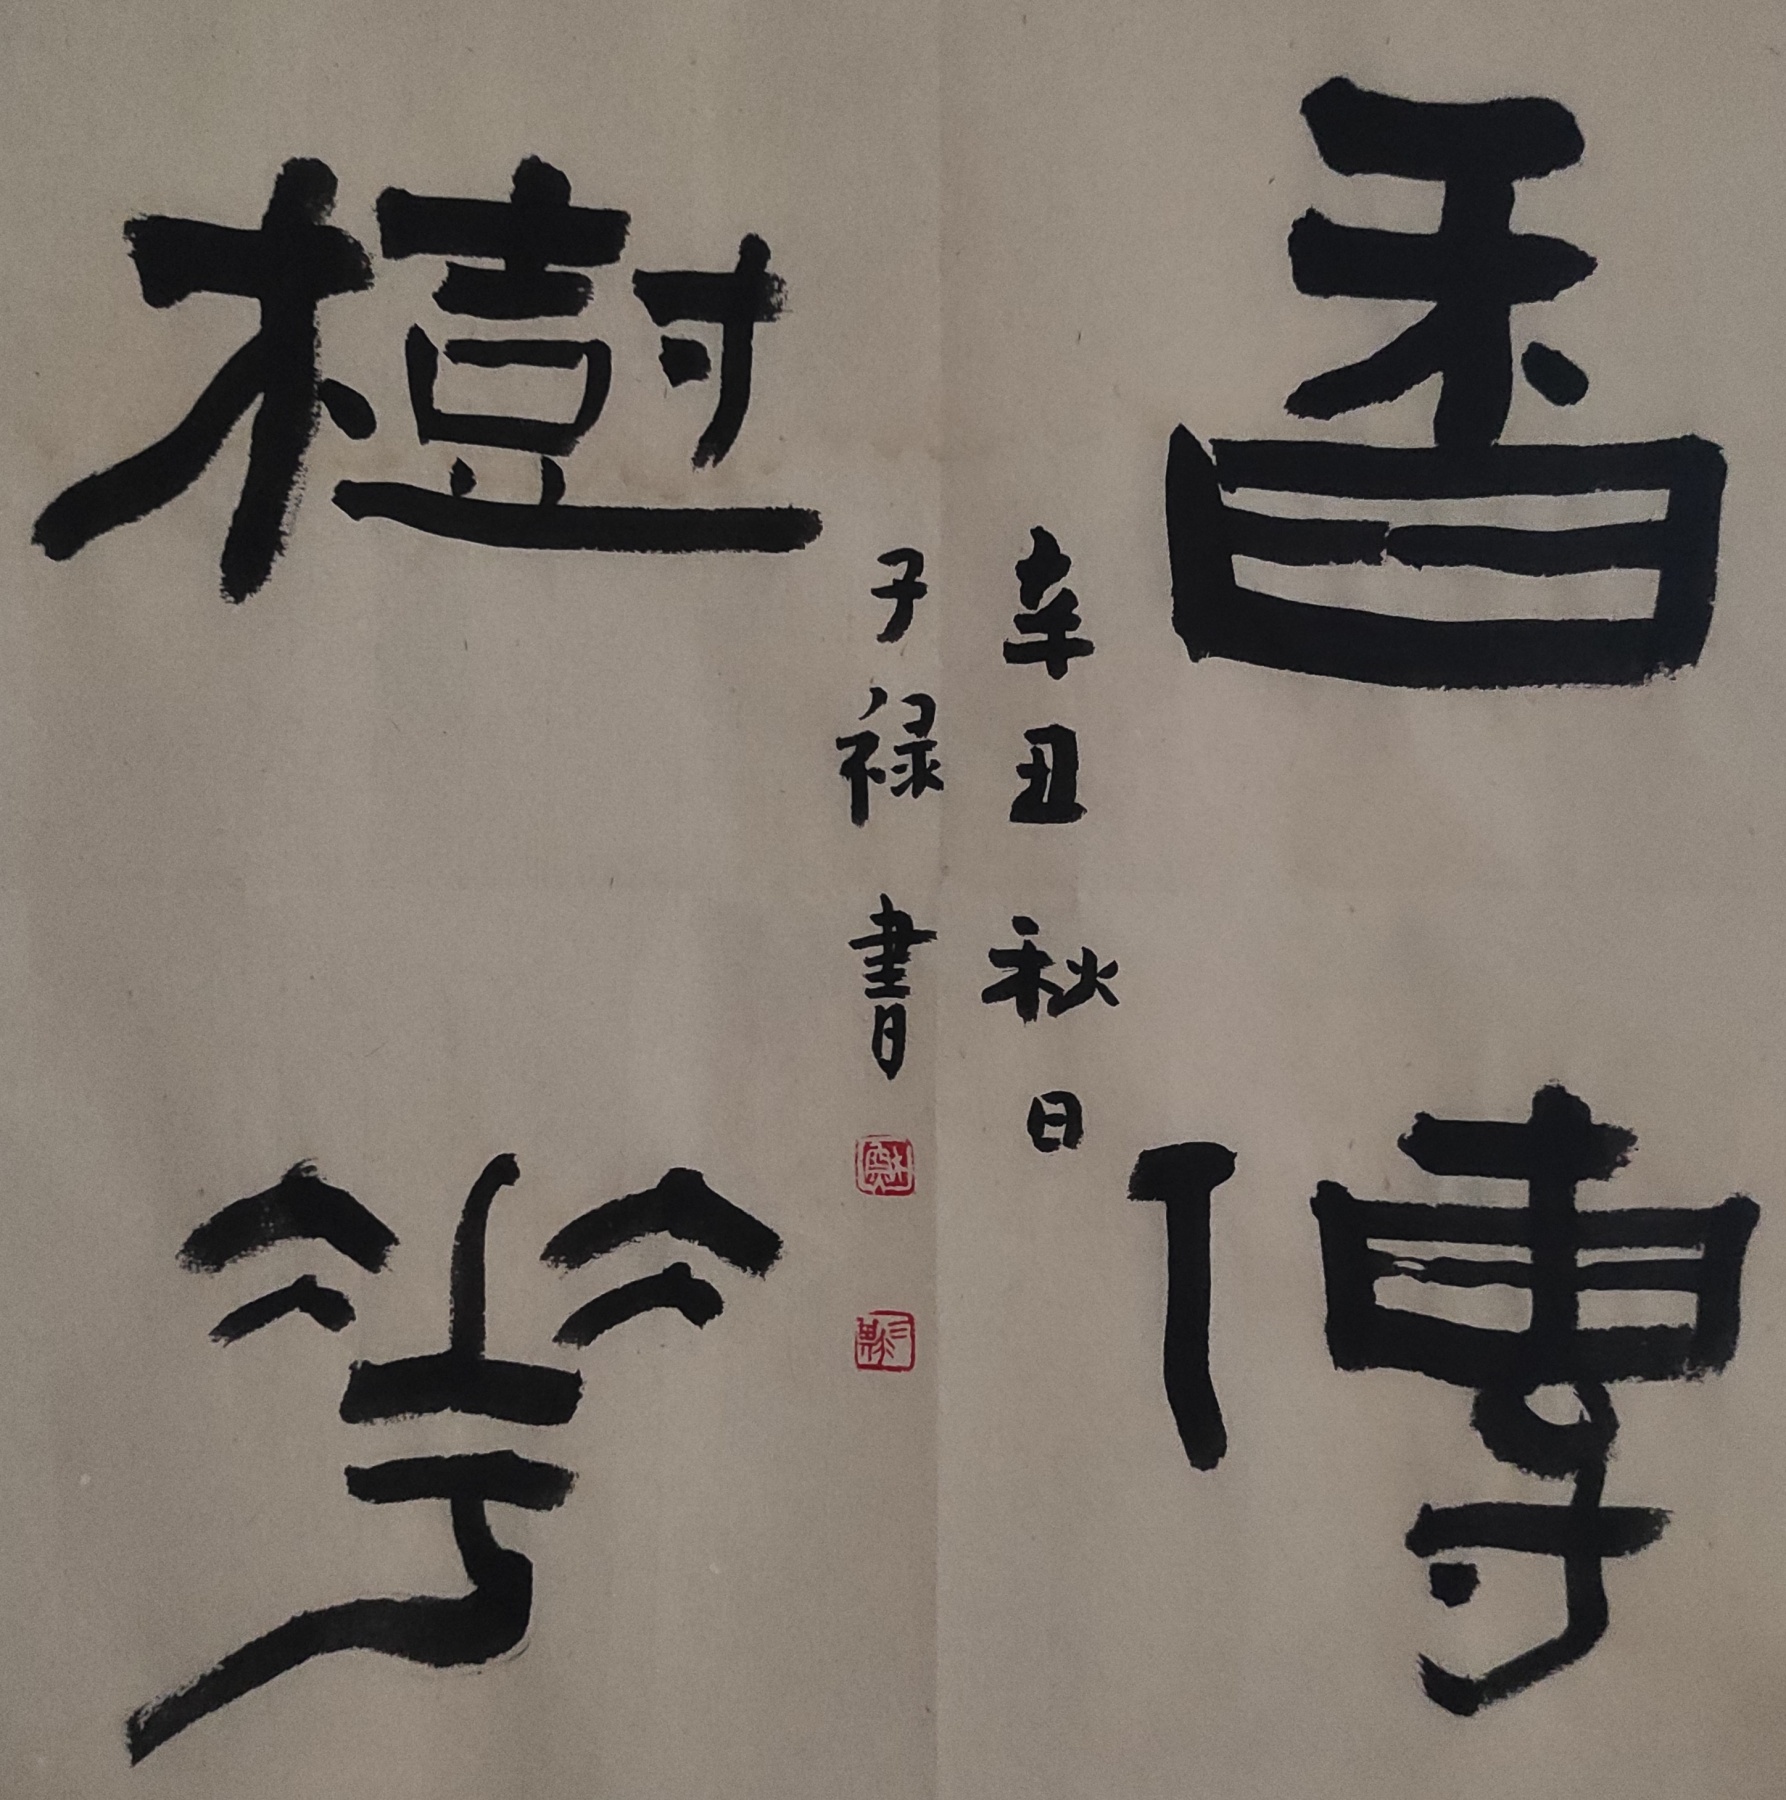 香傳
樹華
辛丑秋日
子禄書